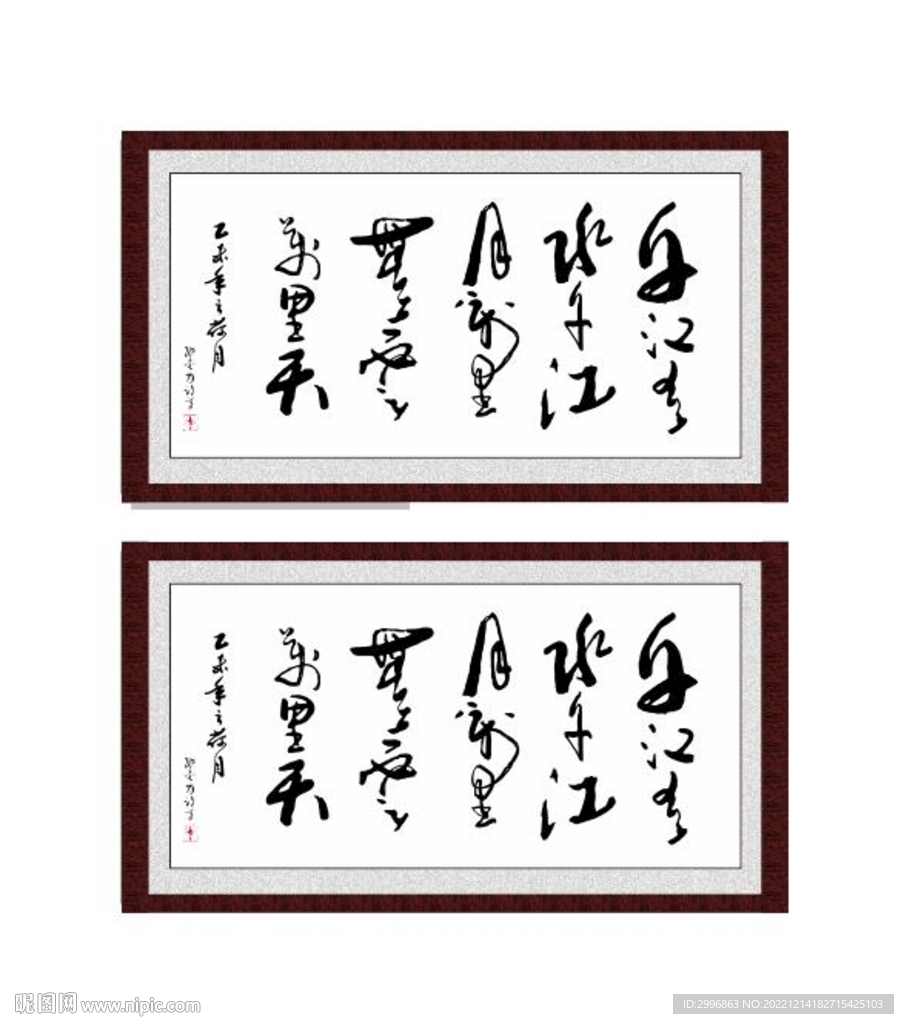 千江有
水千江
月萬里
無雲
萬里天
乙未年之荷月
千江有
水千江
月萬里
無雲
萬里天
乙未年之荷月
昵图网 www.nipic.com
ID:2996863 NO:20221214182715425103